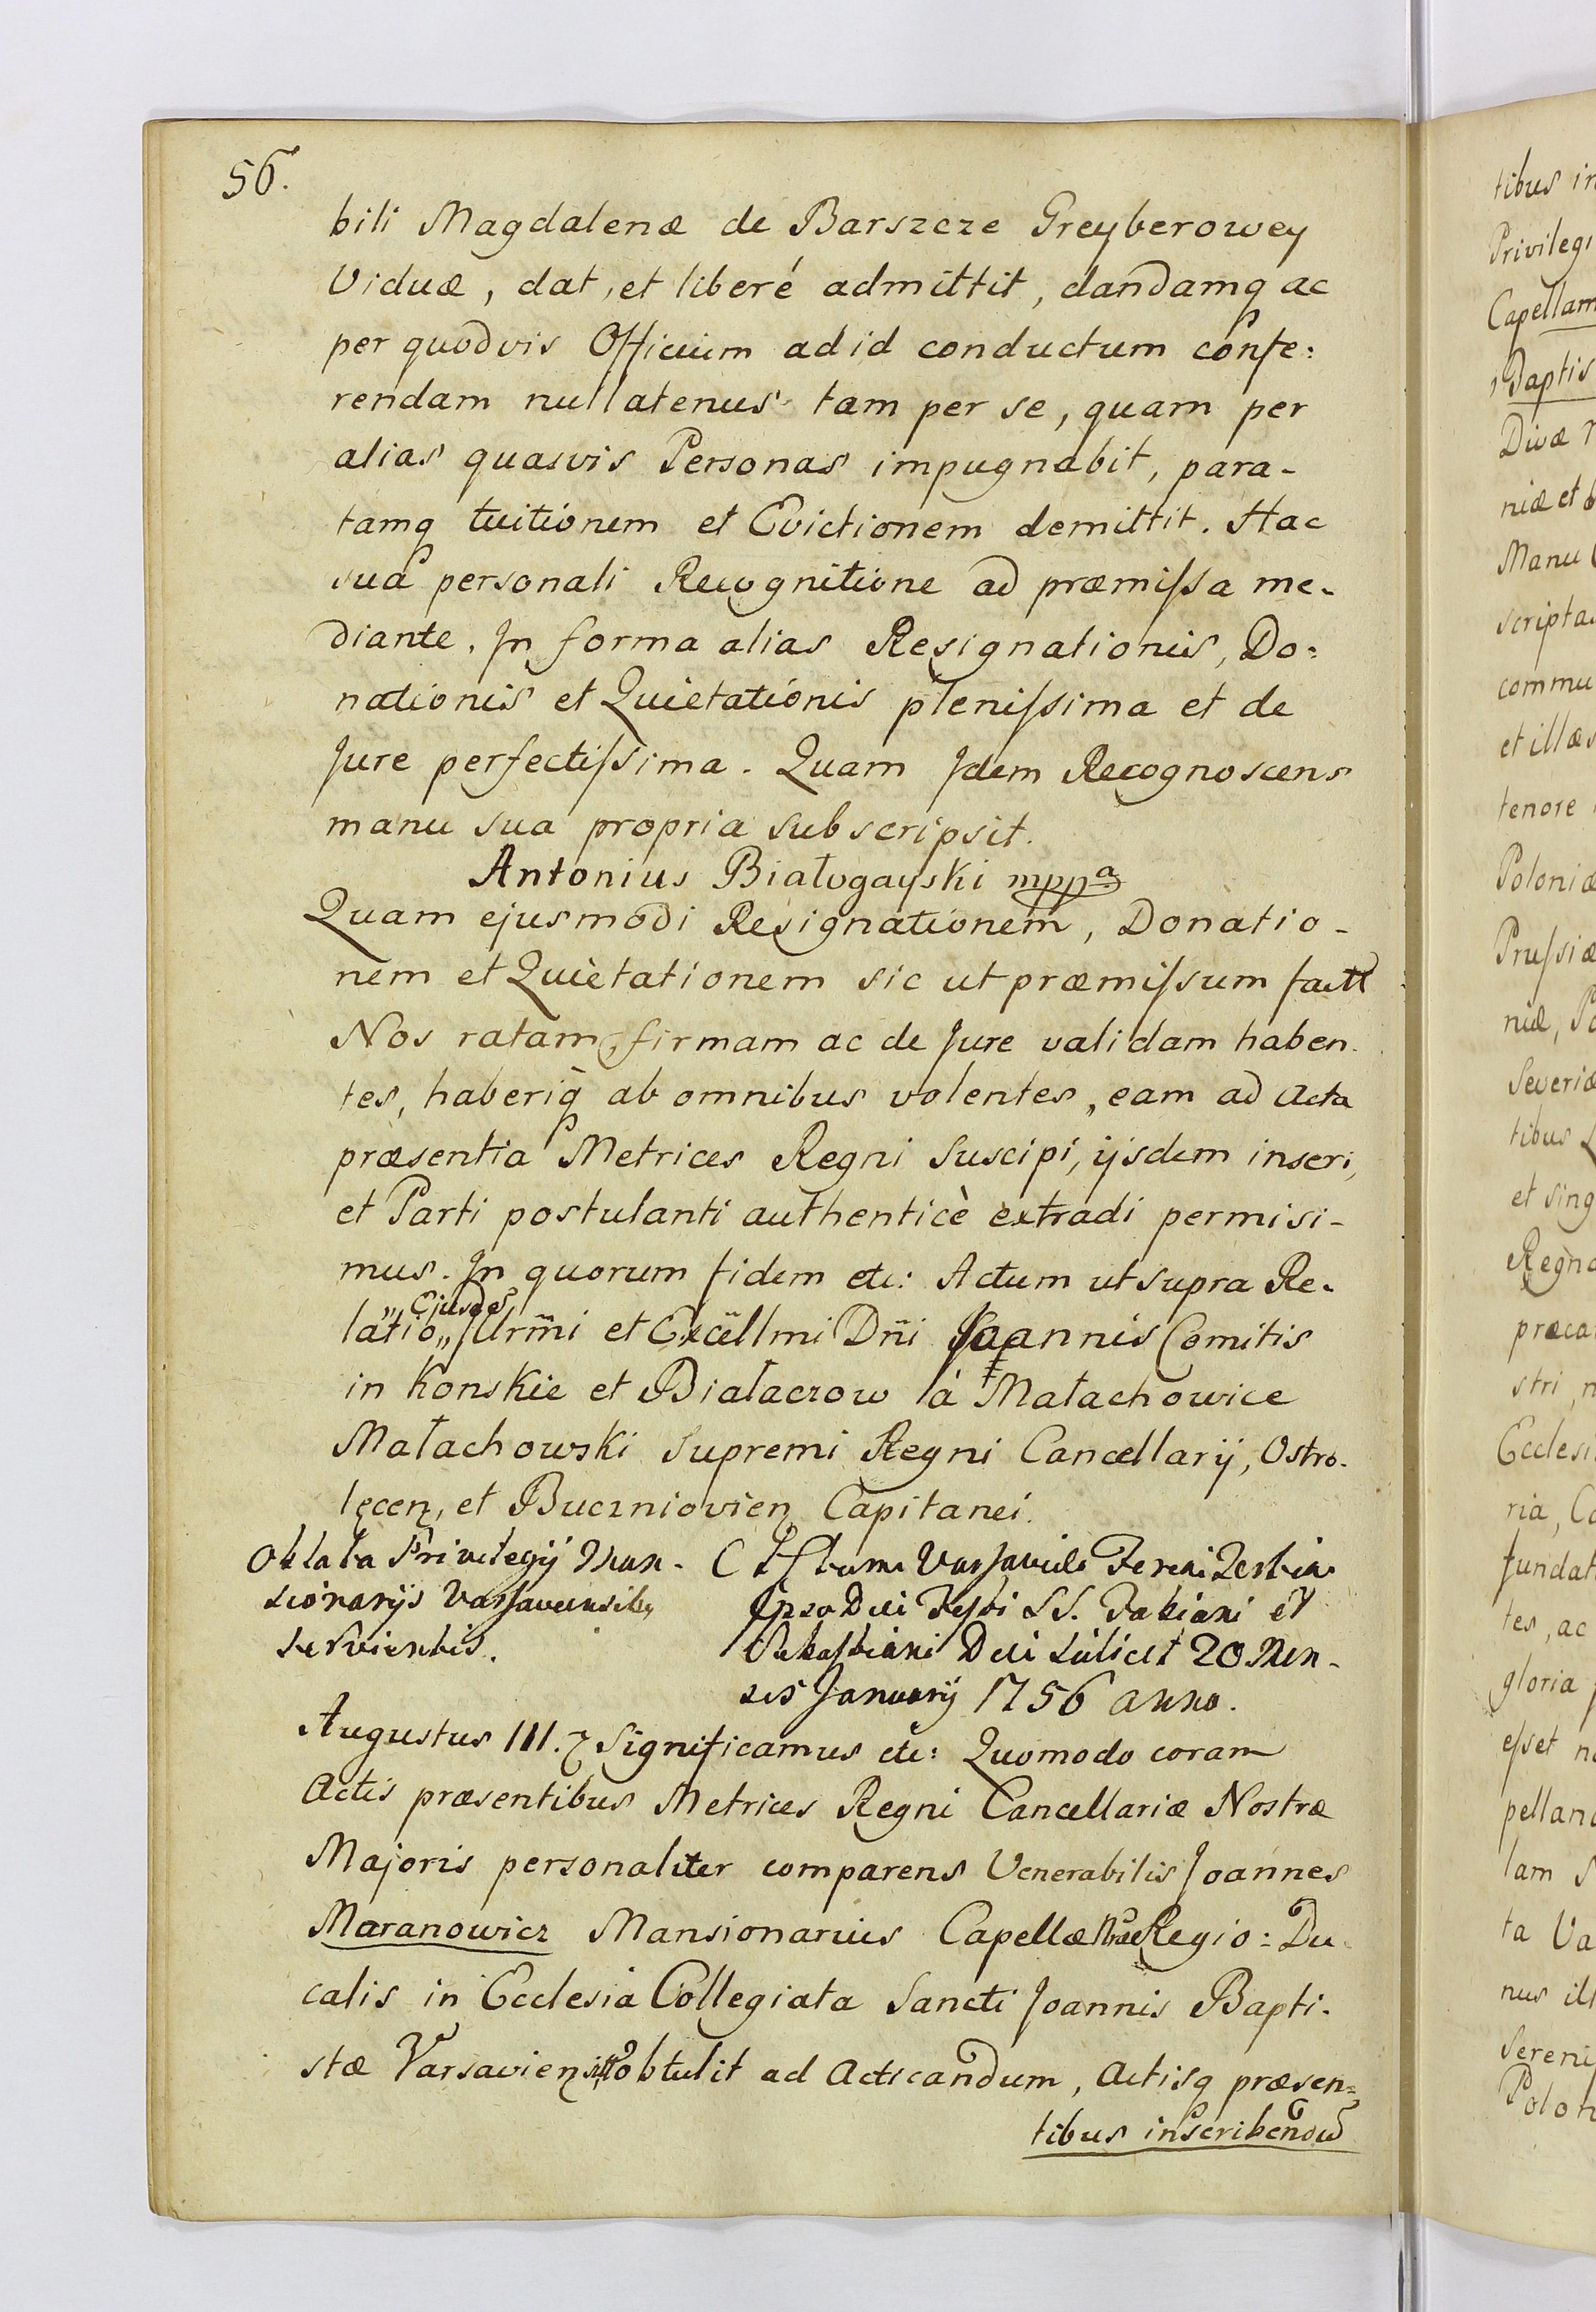 56.
bili Magdalenæ de Barszcze Greyberowey
Viduæ, dat, et liberé admittit, dandamq ac
per quodvis Officium ad id conductum confe:
rendam nullatenus tam per se, quam per
alias quasvis Personas impugnabit, para-
tamq tuitionem et Evictionem demittit. Hac
sua personali Recognitione ad præmiſsa me-
diante. In forma alias Resignationis, Do:
nationis et Quietationis pleniſsima et de
Jure perfectiſsima. Quam Idem Recognoscens
manu sua propria subscripsit.
Antonius Białogayski mppa
Quam ejusmodi Resignationem, Donatio-
nem et Quietationem sic ut præmiſsum
Nos ratam, firmam ac de Jure validam haben-
tes, haberiq̀ ab omnibus volentes, eam ad Acta
præsentia Metrices Regni Suscipi, ijsdem inseri,
et Parti postulanti authenticè extradi permisi-
mus. In quorum fidem etc: Actum ut supra Re-
latio Ejusdem Illrm̃i et Excellmi Dñi Joannis Comitis
in Konskie et Białaczow à Małachowice
Małachowski Supremi Regni Cancellarij, Ostro-
lęcen, et Buczniovien Capitanei.
Oblata Privilegij Man-
sionarijs Varſaviensibus
servientis.
Actum Varſaviæ Feria Tertia
Ipso Die Feſti SS. Fabiani et
Sebaſtiani Die scilicet 20 Men-
sis Januarij 1756 anno.
Augustus III. Significamus etc: Quomodo coram
Actis præsentibus Metrices Regni Cancellariæ Nostræ
Majoris personaliter comparens Venerabilis Joannes
Maranowicz Mansionarius Capellæ Nræ Regio: Du-
calis in Ecclesia Collegiata Sancti Joannis Bapti-
stæ Varsavien obtulit ad Acticandum, Actisq præsen=
tibus inscribendum
tibus in
Privilegi
Capellam
Baptis
Divæ
niæ et
Manu
scripta
commu
et illæs
tenore
Poloniæ
Pruſsiæ
niæ, Po
Severiæ
tibus
et sing
Regno
præca
stri, n
Ecclesi
ria, Ca
fundat
tes, ac
gloria
eſset n
pellano
lam S
ta Va
nus ill
Sereni
Polon